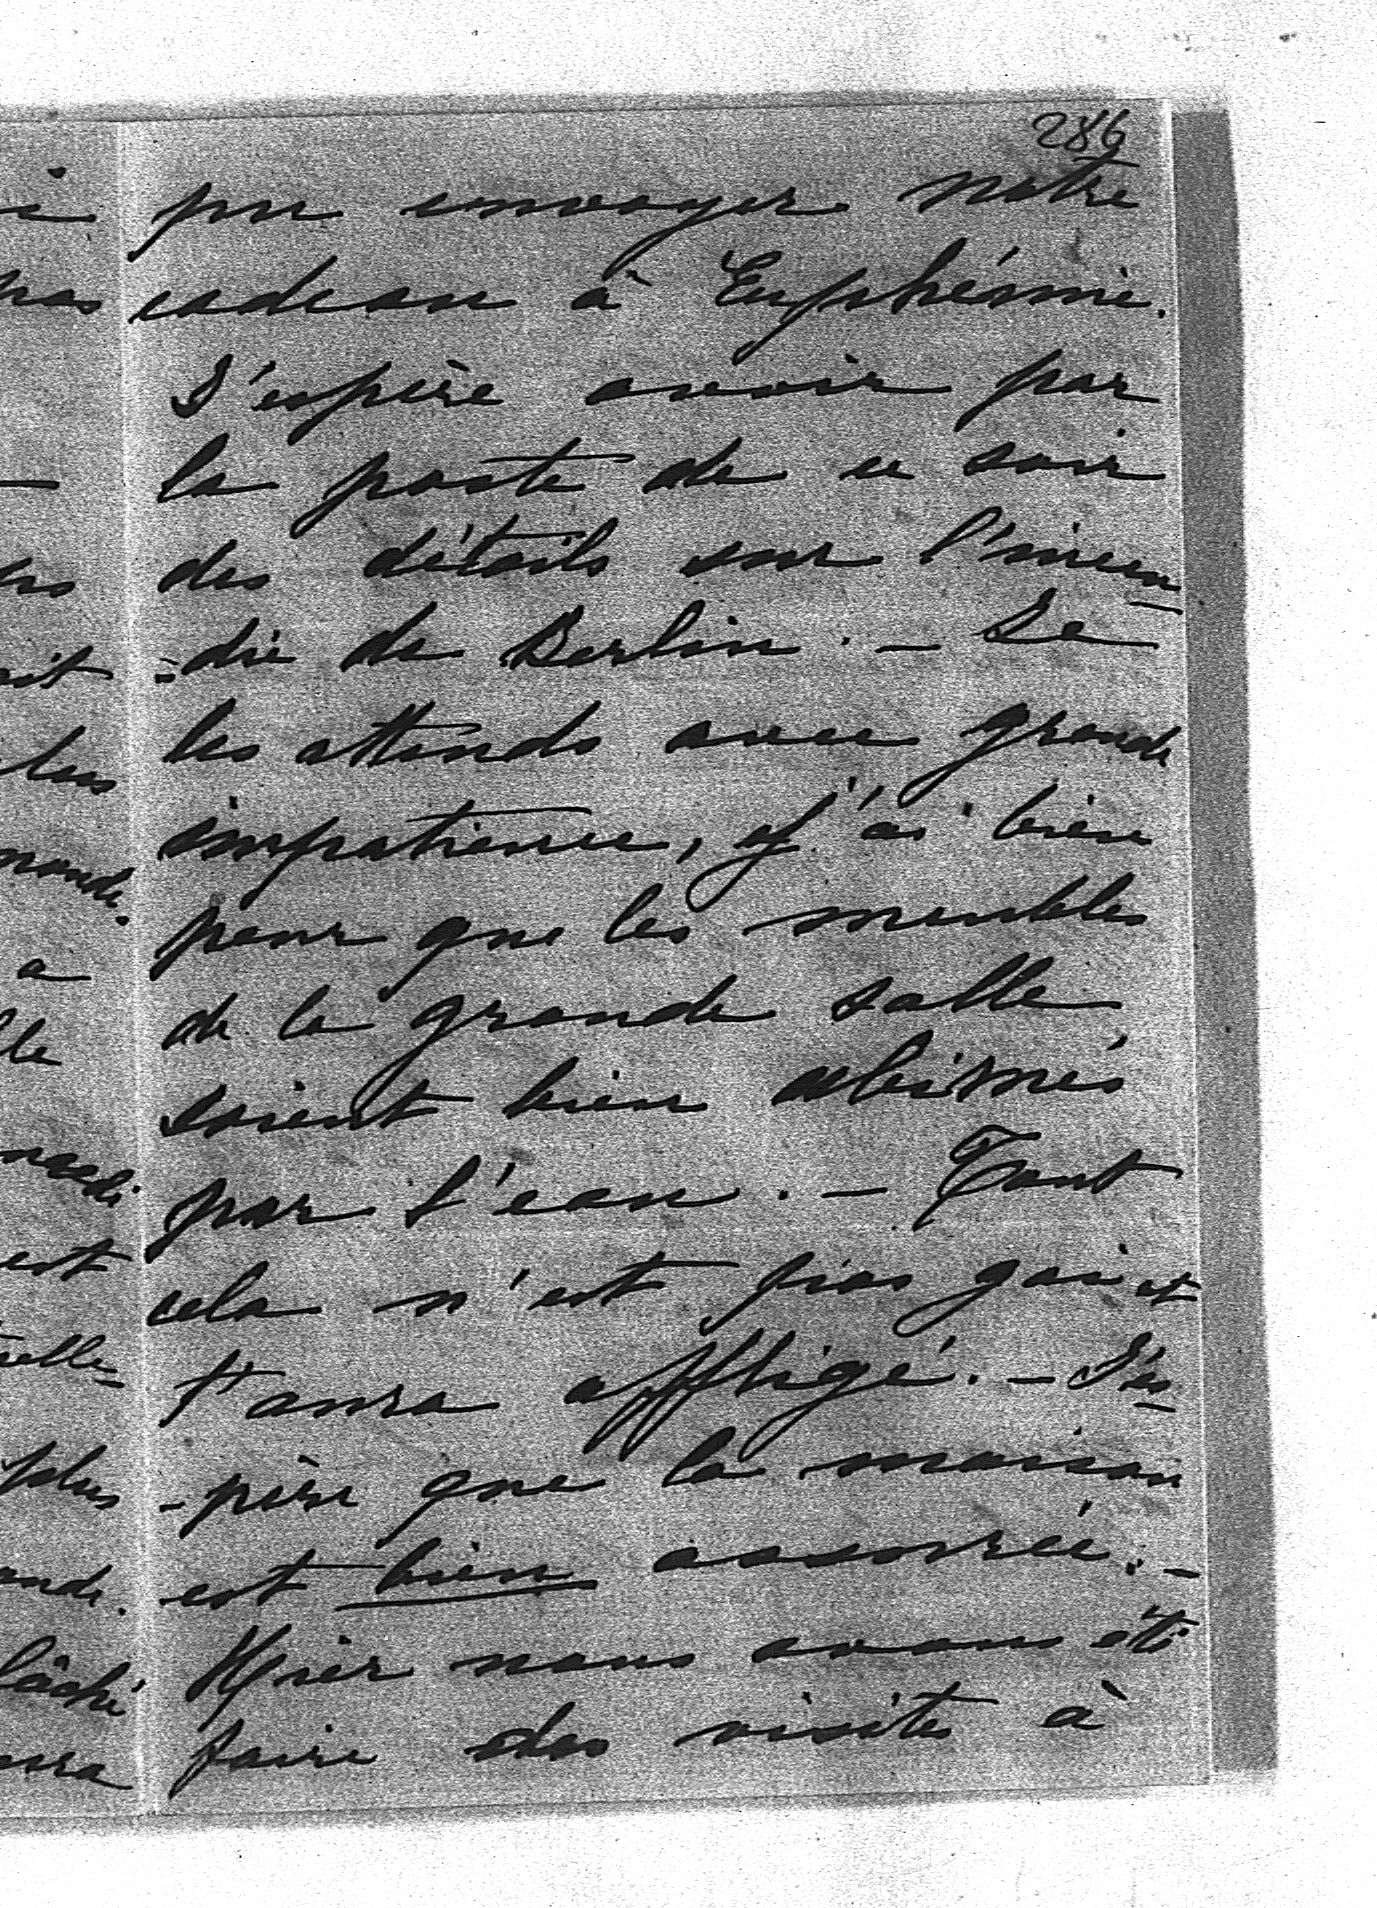 286
pu envoyer notre
cadeau à Euphémie.
J'espère avoir par
la poste de ce soir
des détails sur l'incen
=die de Berlin. — Je
les attends avec grande
impatience, j'ai bien
peur que les meubles
de la grande salle
soient bien abîmés
par l'eau. — Tout
cela n'est pas gai et
t'aura affligé. — J'es
-père que la maison
est bien assurée. —
Hier nous avons été
faire des visites à
pas
plus
a
est
plus
lâché